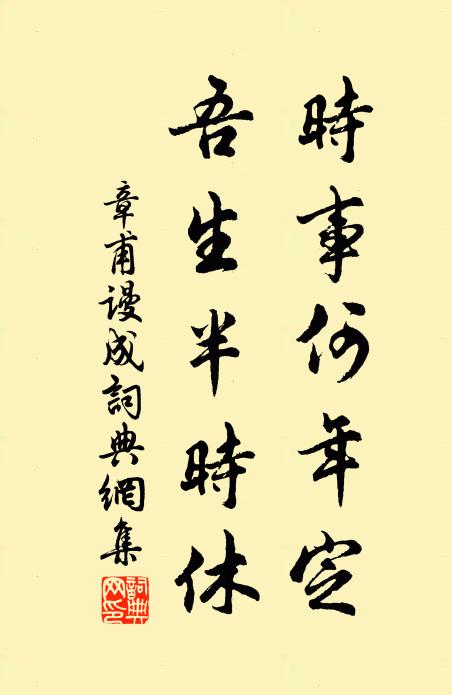 時事何年定
吾生半時休
章甫謾成詞典網集
詞典网印